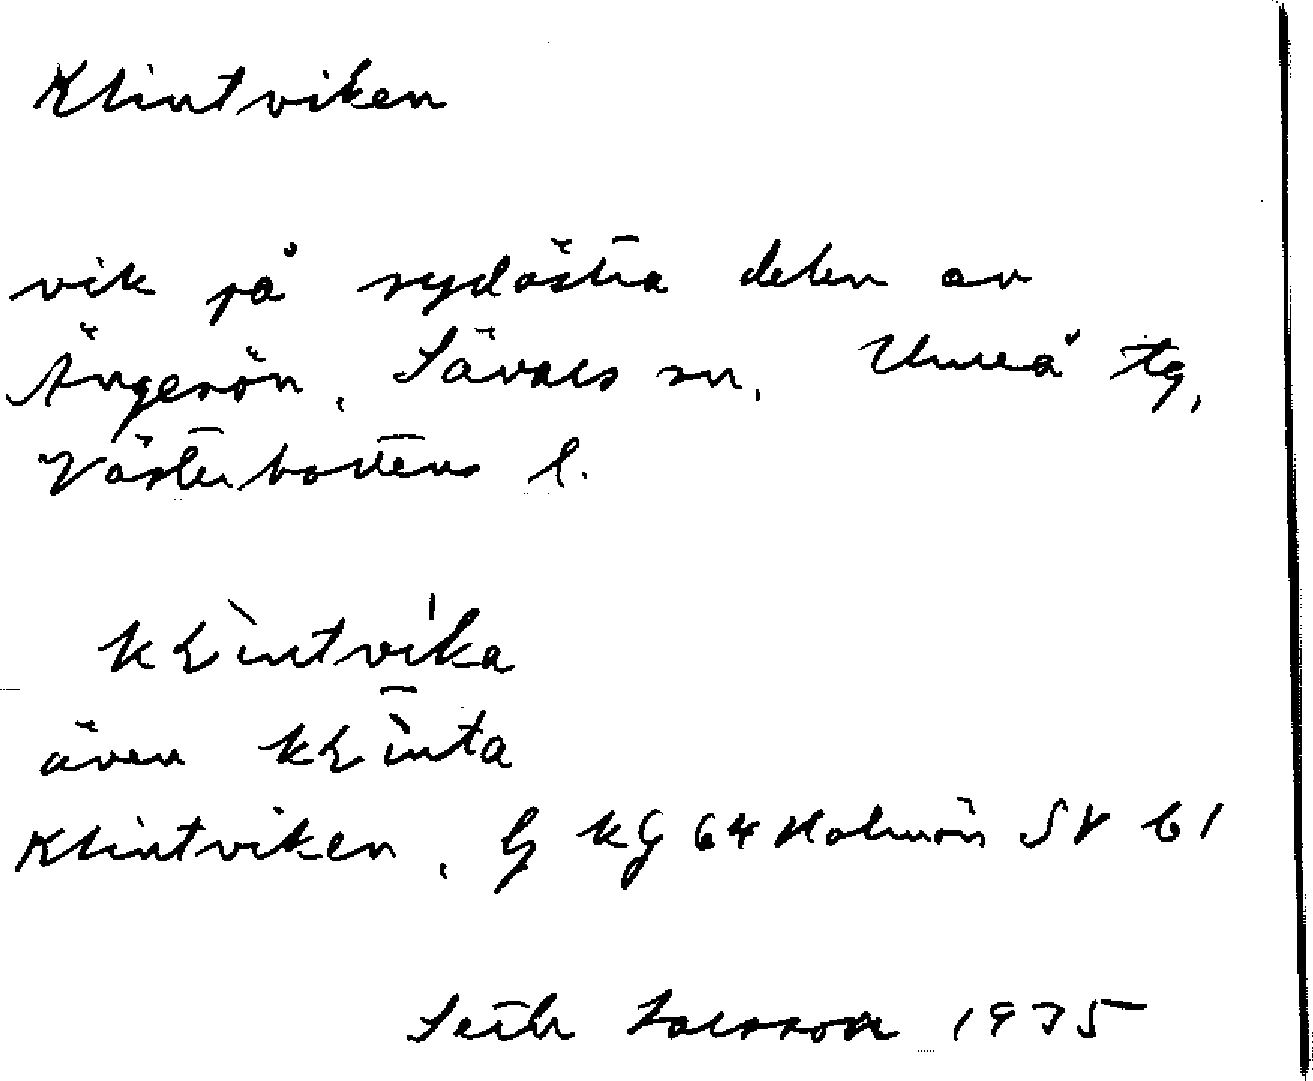 Klintviken
vik på sydöstra delen av
Ängesön, Sävars sn, Umeå tg,
Västerbottens l.
kḷìntvi̍ka
även kḷìnta
Klintviken, G kg 64 Holmön SV b1
Larsson 1975